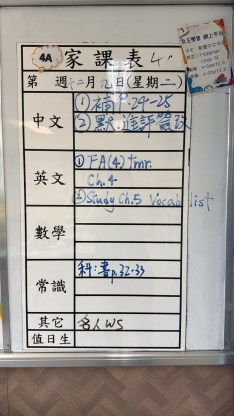 4A 家課表
第 週十二月九日(星期二)
中文
① 補 p.29-25
② 默、進評簽改
英文
① FA(4) tmr.
Ch.4
② Study Ch.5 Vocab list
數學
常識
科:書p.32-33
其它
名人WS
值日生
自主學習 網上平台